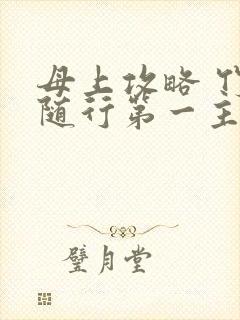 母上攻略
随行第一主
璧月堂